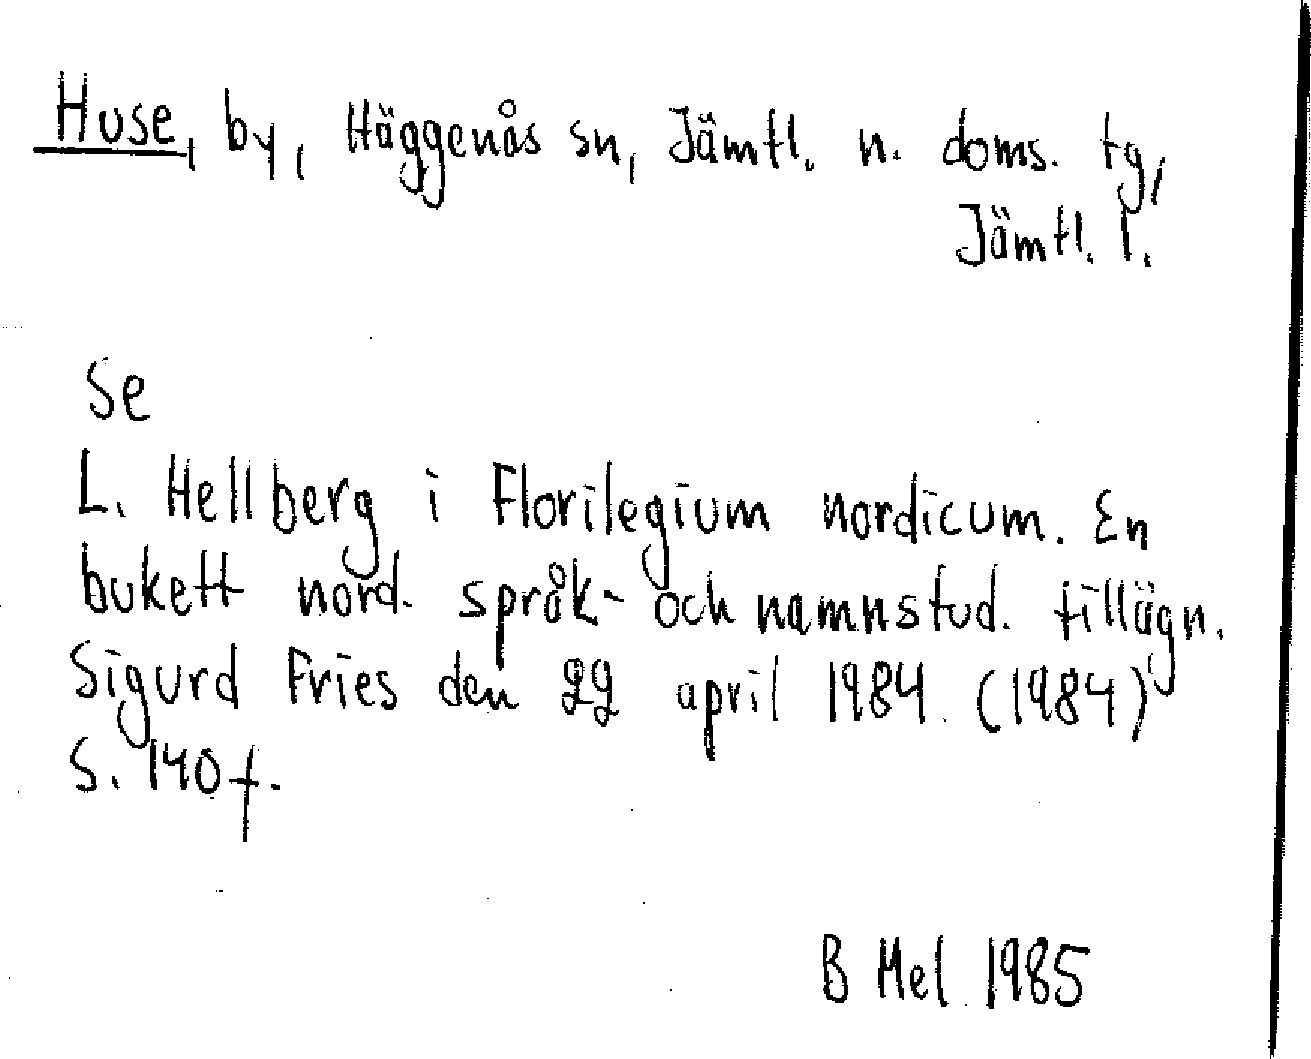 Huse, by, Häggenås sn, Jämtl. n. doms. tg,
Jämtl. l.
Se
L. Hellberg i Florilegium nordicum. En
bukett nord. språk- och namnstud. tillägn.
Sigurd Fries den 22 april 1984. (1984)
S. 140 f.
B Mel 1985